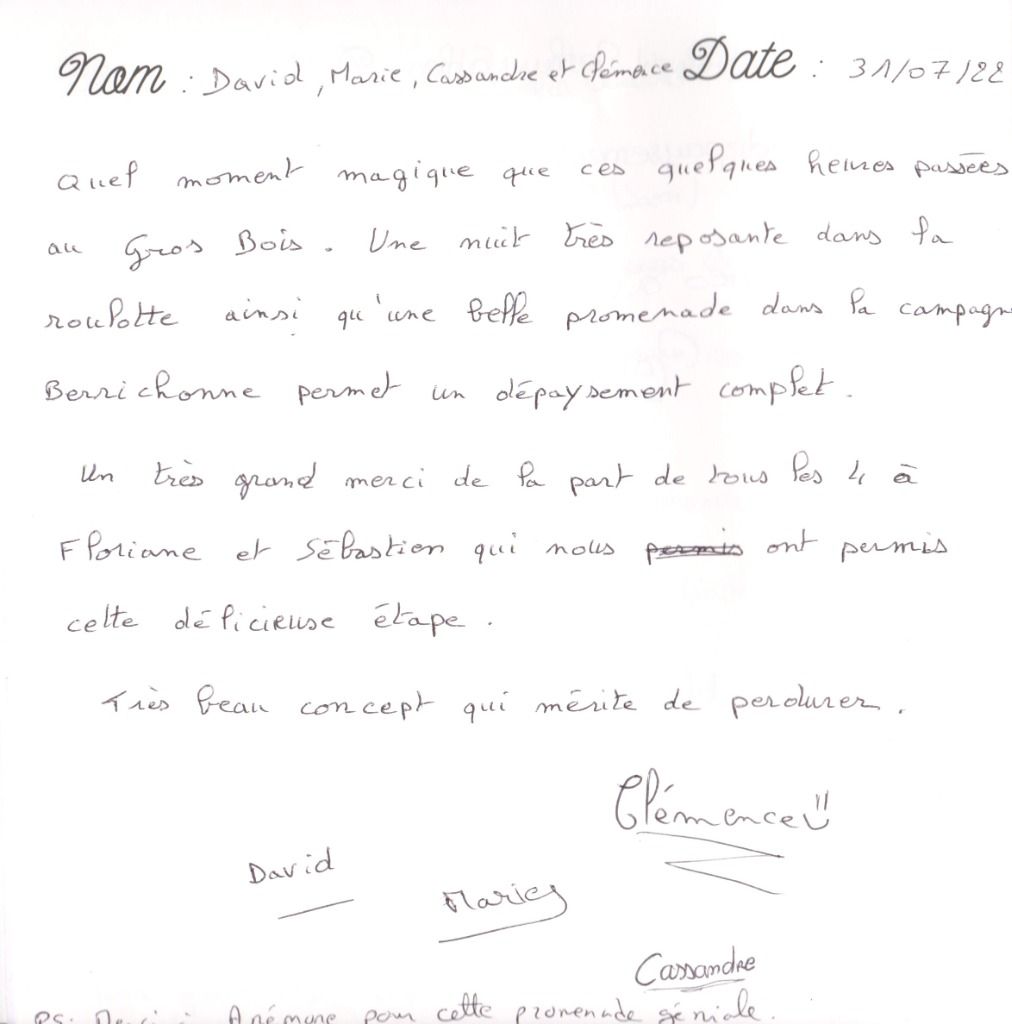 Nom : David, Marie, Cassandre et Clémence Date : 31/07/22
Quel moment magique que ces quelques heures passées
au Gros Bois. Une nuit très reposante dans la
roulotte ainsi qu'une belle promenade dans la campagn
Berrichonne permet un dépaysement complet.
Un très grand merci de la part de tous les 4 à
Floriane et Sébastien qui nous permis ont permis
cette délicieuse étape.
Très beau concept qui mérite de perdurer.
Clémence
David
Marie
Cassandre
PS: Merci à Anémone pour cette promenade géniale.